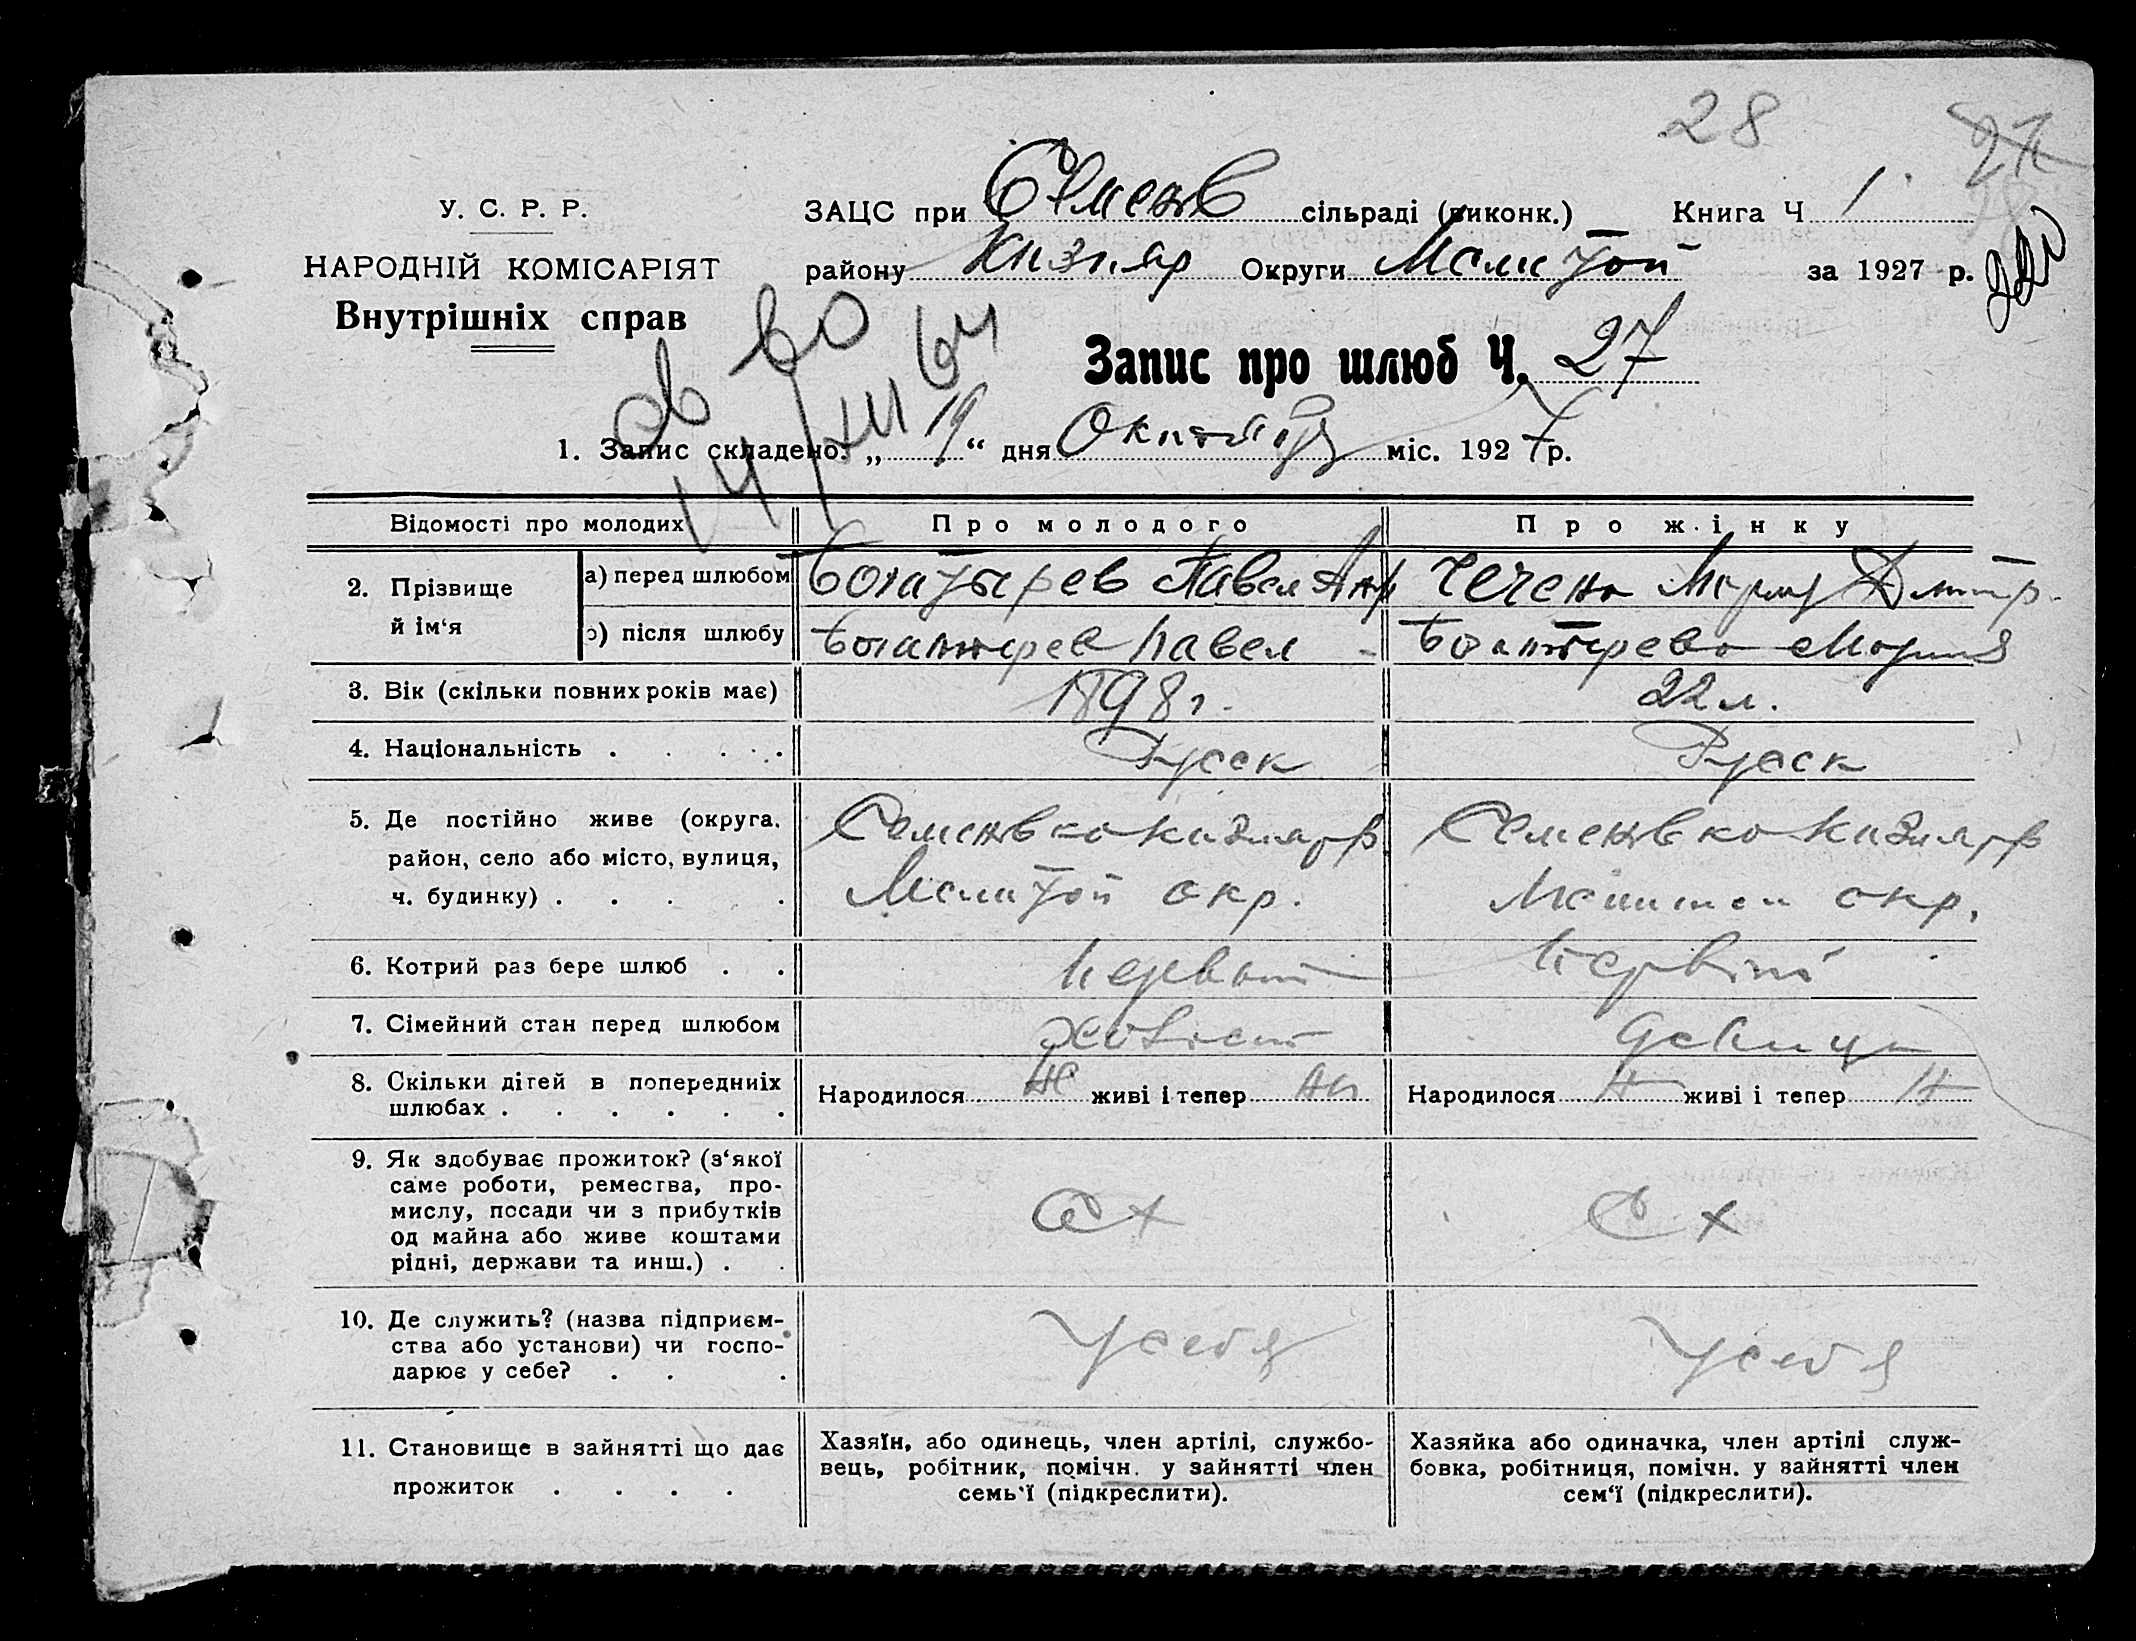 28
У. С. Р. Р.
НАРОДНІЙ КОМІСАРІЯТ
Внутрішніх справ
ЗАЦС при Семенов сільраді (виконк.) Книга Ч 1
району Кизияр Округи Мелитоп за 1927 р.
Запис про шлюб Ч. 27
1. Запис складено: „19“ дня Октября міс. 1927 р.
Відомості про молодих Про молодого Про жінку
2. Прізвище й ім‘я
а) перед шлюбом Богатырев Павел Анд Чечена Мария Дмитр.
б) після шлюбу Богатырев Павел Богатырева Мария
3. Вік (скільки повних років має) 1898 г. 22 л.
4. Національність . . . . . Русск Русск
5. Де постійно живе (округа,
район, село або місто, вулиця,
ч. будинку) . . . .
Семеновка Кизияр р Семеновка Кизияр р
Мелитоп окр. Мелитоп окр.
6. Котрий раз бере шлюб . . Первый Первый
7. Сімейний стан перед шлюбом Холост Девица
8. Скільки дітей в попередниіх
шлюбах . . . . . .
Народилося живі і тепер Народилося живі і тепер
9. Як здобуває прожиток? (з‘якої
саме роботи, ремества, про-
мислу, посади чи з прибутків
од майна або живе коштами
рідні, держави та инш.) . .
Сх Сх
10. Де служить? (назва підприєм-
ства або установи) чи госпо-
дарює у себе? . . .
У себя У себя
11. Становище в зайнятті що дає
прожиток . . . .
Хазяїн, або одинець, член артілі, службо-
вець, робітник, помічн. у зайнятті член
семь‘ї (підкреслити).
Хазяйка або одиначка, член артілі служ-
бовка, робітниця, помічн. у зайнятті член
сем‘ї (підкреслити).